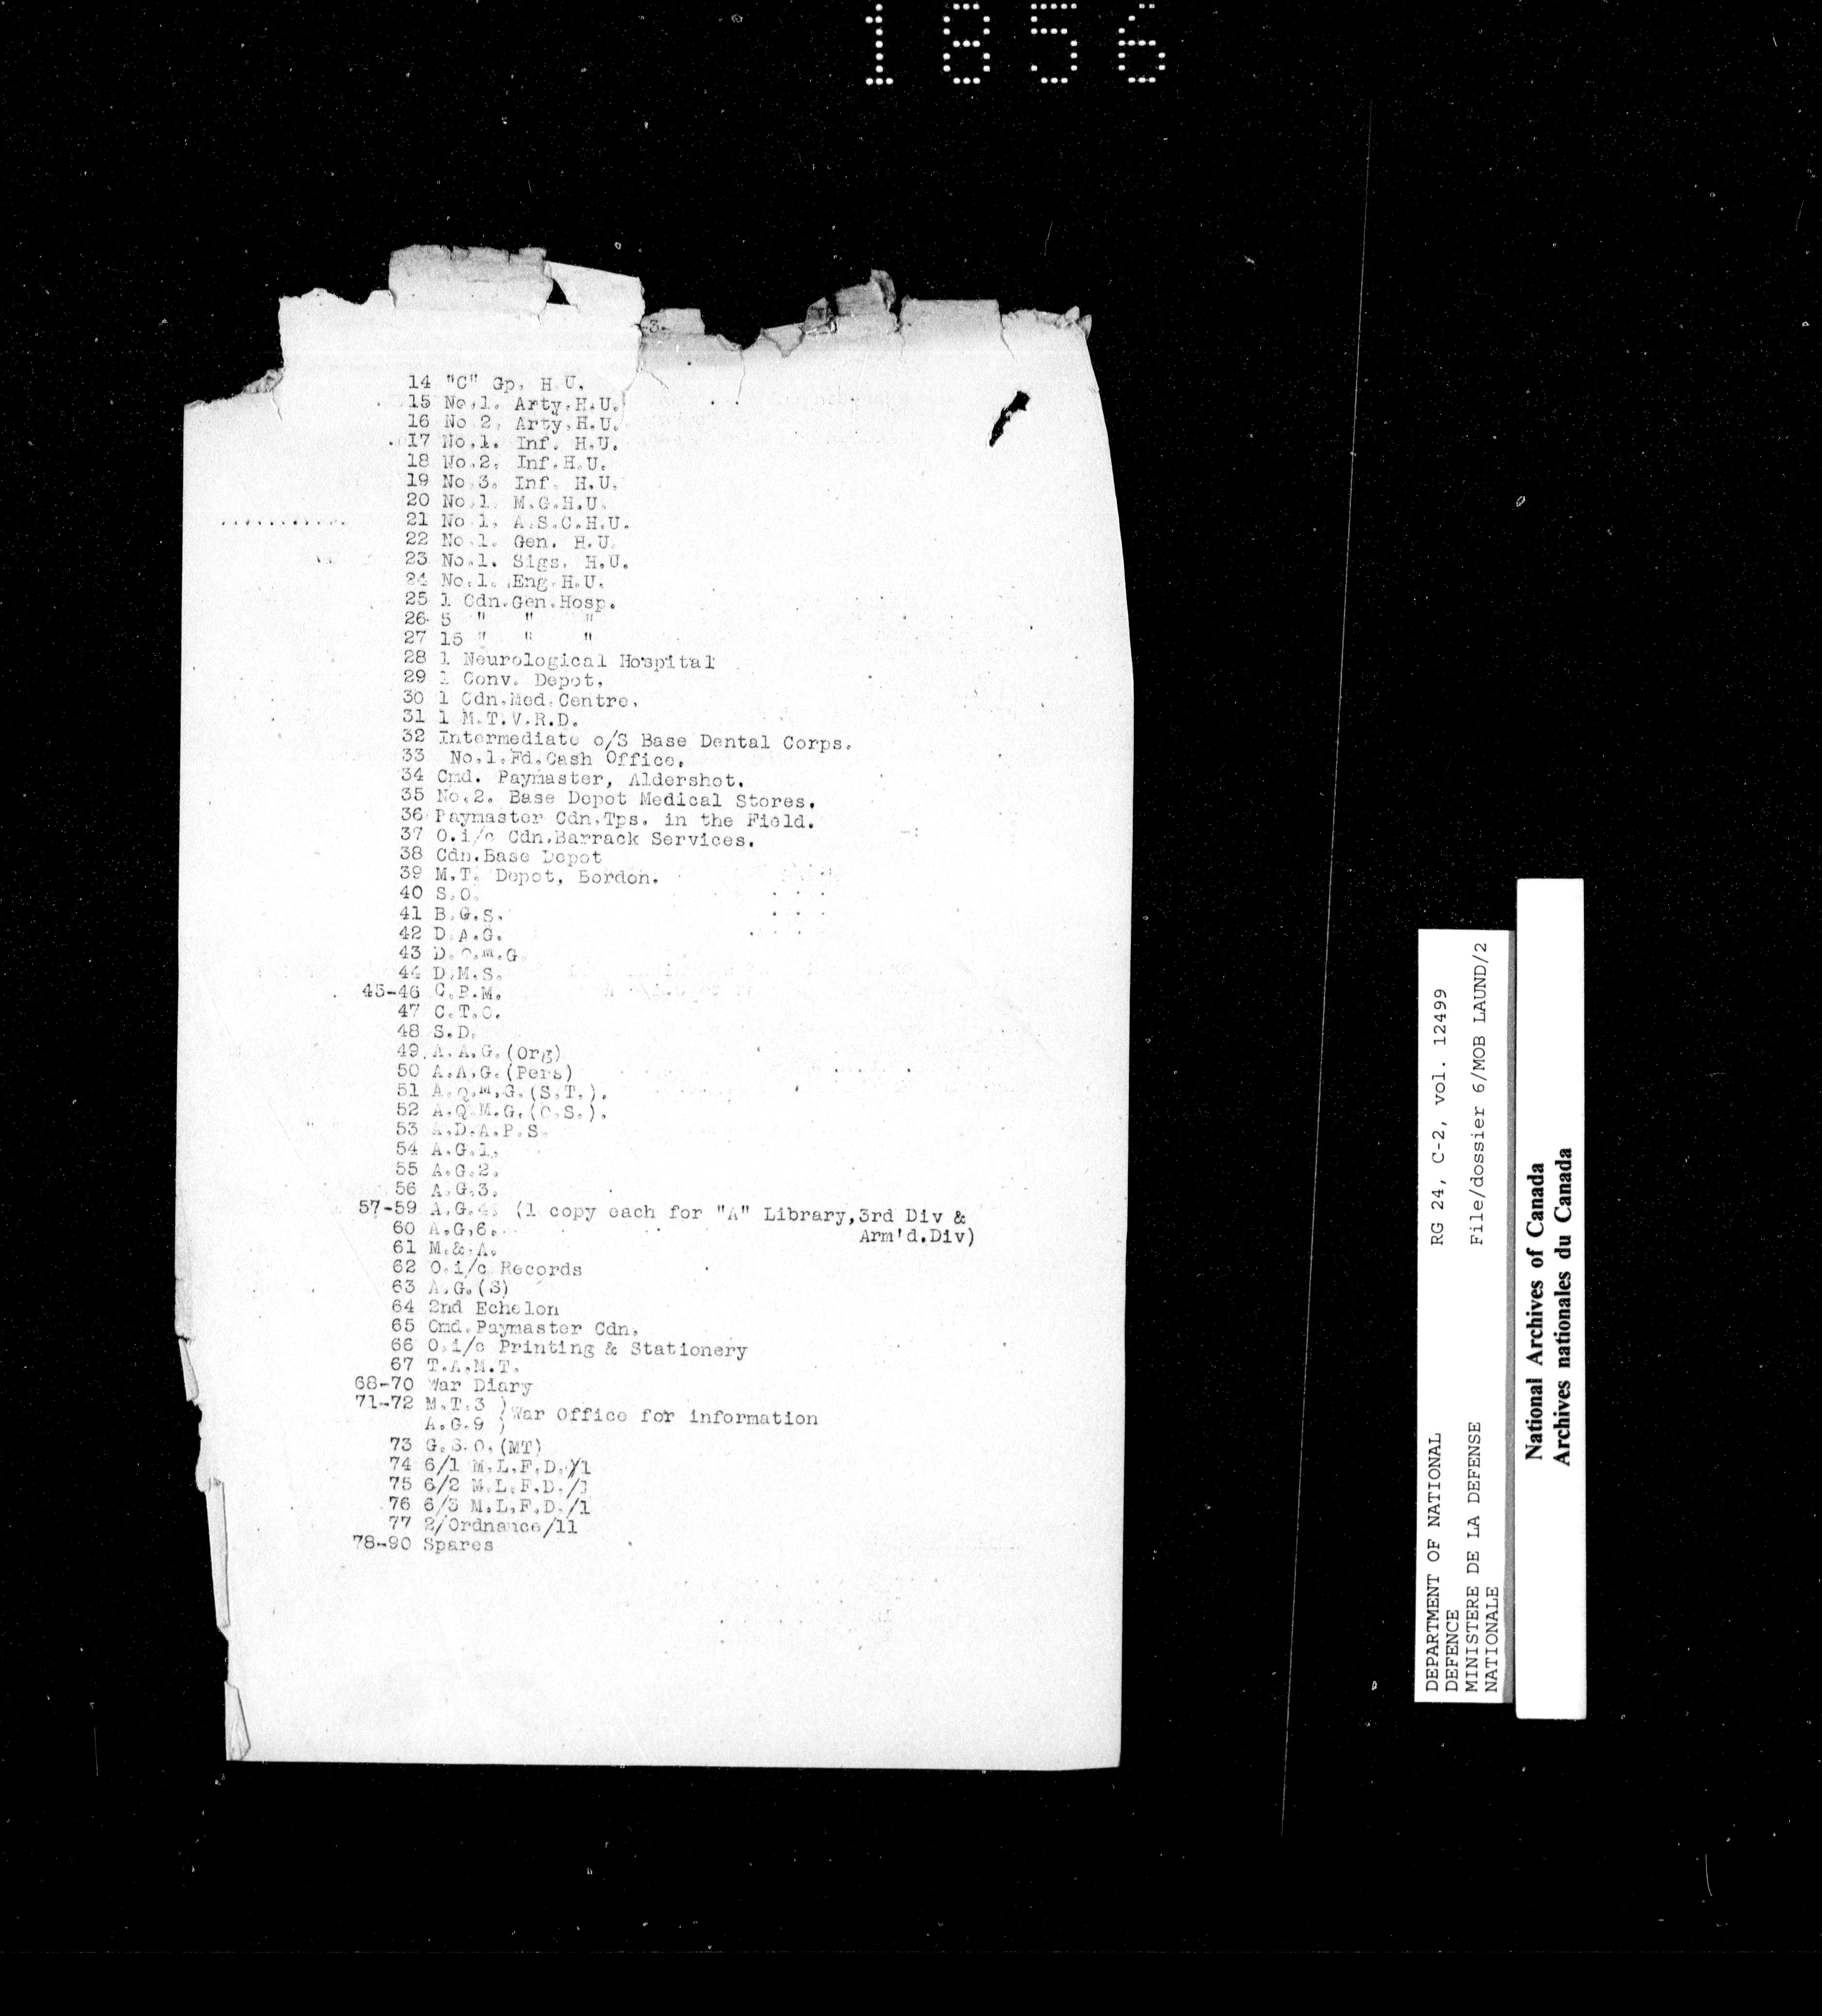 1856
-3-
14 "C" Gp. H.U.
15 No.1. Arty.H.U.
16 No 2. Arty.H.U.
17 No.1. Inf. H.U.
18 No.2. Inf.H.U.
19 No.3. Inf. H.U.
20 No.1. M.G.H.U.
21 No 1. A.S.C.H.U.
22 No.1. Gen. H.U.
23 No.1. Sigs. H.U.
24 No.1. Eng.H.U.
25 1 Cdn.Gen.Hosp.
26 5 " " "
27 15 " " "
28 1 Neurological Hospital
29 1 Conv. Depot.
30 1 Cdn.Med.Centre.
31 1 M.T.V.R.D.
32 Intermediate o/S Base Dental Corps.
33 No.1.Fd.Cash Office.
34 Cmd. Paymaster, Aldershot.
35 No.2. Base Depot Medical Stores.
36 Paymaster Cdn.Tps. in the Field.
37 O.i/c Cdn.Barrack Services.
38 Cdn.Base Depot
39 M.T. Depot, Bordon.
40 S.O.
41 B.G.S.
42 D.A.G.
43 D.Q.M.G.
44 D.M.S.
45-46 C.P.M.
47 C.T.C.
48 S.D.
49 A.A.G.(Org)
50 A.A.G.(Pers)
51 A.Q.M.G.(S.T.).
52 A.Q.M.G.(O.S.).
53 A.D.A.P.S.
54 A.G.1.
55 A.G.2.
56 A.G.3.
57-59 A.G.4. (1 copy each for "A" Library,3rd Div &
60 A.G.6. Arm'd.Div)
61 M.& A.
62 O.i/c Records
63 A.G.(S)
64 2nd Echelon
65 Cmd.Paymaster Cdn.
66 O.i/c Printing & Stationery
67 T.A.M.T.
68-70 War Diary
71-72 M.T.3 )
A.G.9 ) War Office for information
73 G.S.O.(MT)
74 6/1 M.L.F.D./1
75 6/2 M.L.F.D./1
76 6/3 M.L.F.D./1
77 2/Ordnance/11
78-90 Spares
DEPARTMENT OF NATIONAL RG 24, C-2, vol. 12499
DEFENCE
MINISTERE DE LA DEFENSE File/dossier 6/MOB LAUND/2
NATIONALE
National Archives of Canada
Archives nationales du Canada